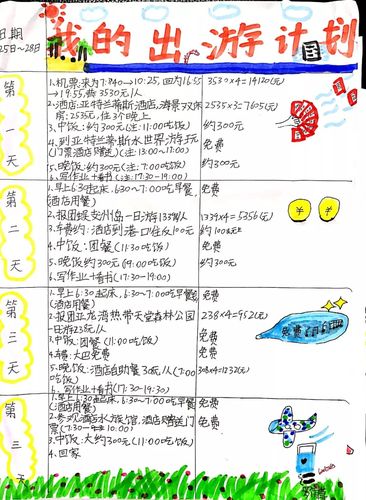 我的出游计划
日期
25日~28日
第一天
1.机票:来为7:840→10:25,回为16:55
→19:55,共3530元/人
3530×4=14120(元)
2.酒店:亚特兰蒂斯酒店,海景双床
房:2535元,住3个晚上
2535×3=7605(元)
3.中饭:约300元(注:11:00吃饭)
约300元
4.到亚特兰蒂斯水世界游玩
(门票酒店赠送)(注:13:00~17:00)
免费
5.晚饭:约300元(注:7:00吃饭)
约300元
6.写作业+看书(注:17:30-19:00)
第二天
1.早上6:30起床,6:30~7:00吃早餐,
(酒店用餐)
免费
2.报团蜈支州岛一日游1339/人
1339×4=5356(元)
3.车费约:酒店到港口坐车100元
约100元
4.中饭:团餐(11:30吃饭)
免费
5.晚饭约300元(19:00吃饭)
约300元
6.写作业+看书(17:30-19:00)
第三天
1.早上6:30起床,6:30~7:00吃早餐
(酒店用餐)
免费
2.报团亚龙湾热带天堂森林公园
一日游238元/人
238×4=952(元)
3.中饭:团餐(11:00吃饭)
免费
4.车费:大巴免费
免费
5.晚饭:酒店自助餐308元/人(7:00
吃饭)
308×4=1232(元)
6.写作业+看书(17:30-19:30)
第三天
1.早上6:30起床,6:30~7:00吃早餐
(酒店用餐)
免费
2.参观酒店水族馆,酒店赠送门
票(7:30-10:00)
免费
3.中饭:大约300元(11:00吃饭)
免费
4.回家